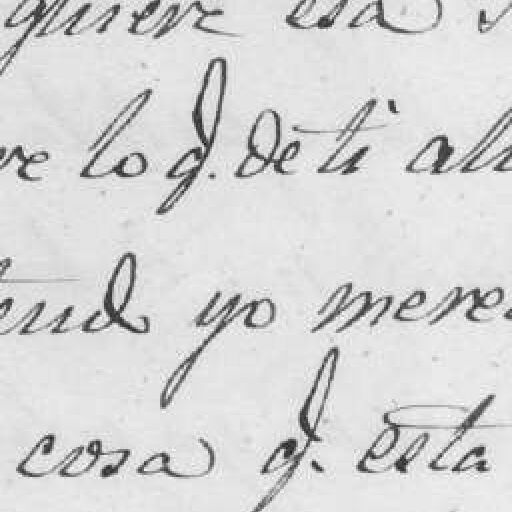 quiere esa
ve lo q. de ti al
tend yo mere
cosa q. esta